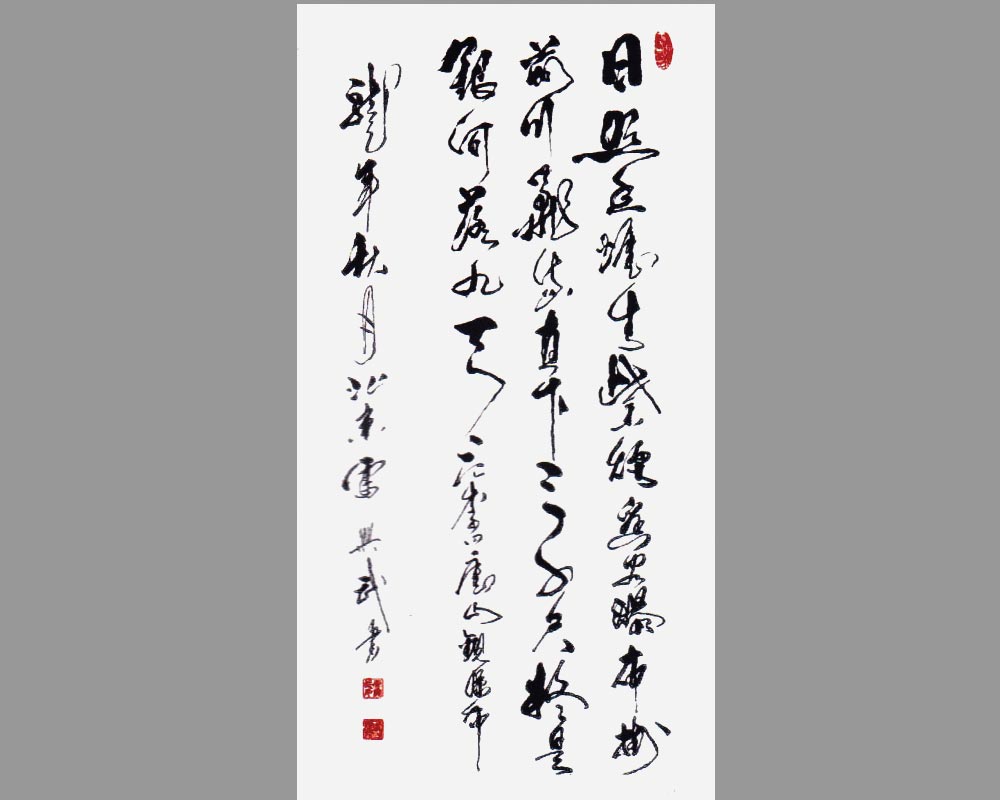 日照香爐生紫煙遙看瀑布掛
前川飛流直下三千尺疑是
銀河落九天李白廬山觀瀑布
龍年秋月北京雷興武書